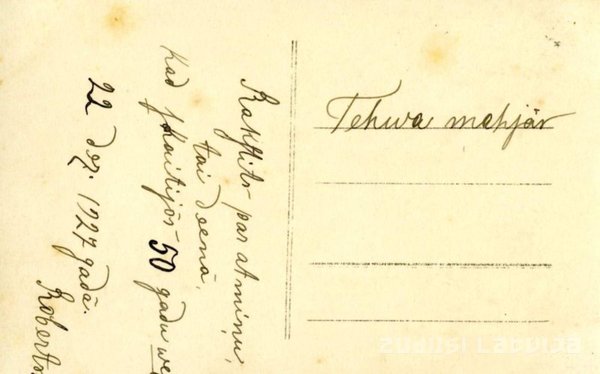 Rakstits par atmiņu,
tai deenā,
kad skaitijos 50 gadu we
22 dez. 1927 gadā.
Roberts
Tehwa mahjās
ZUDUSĪ LATVIJA